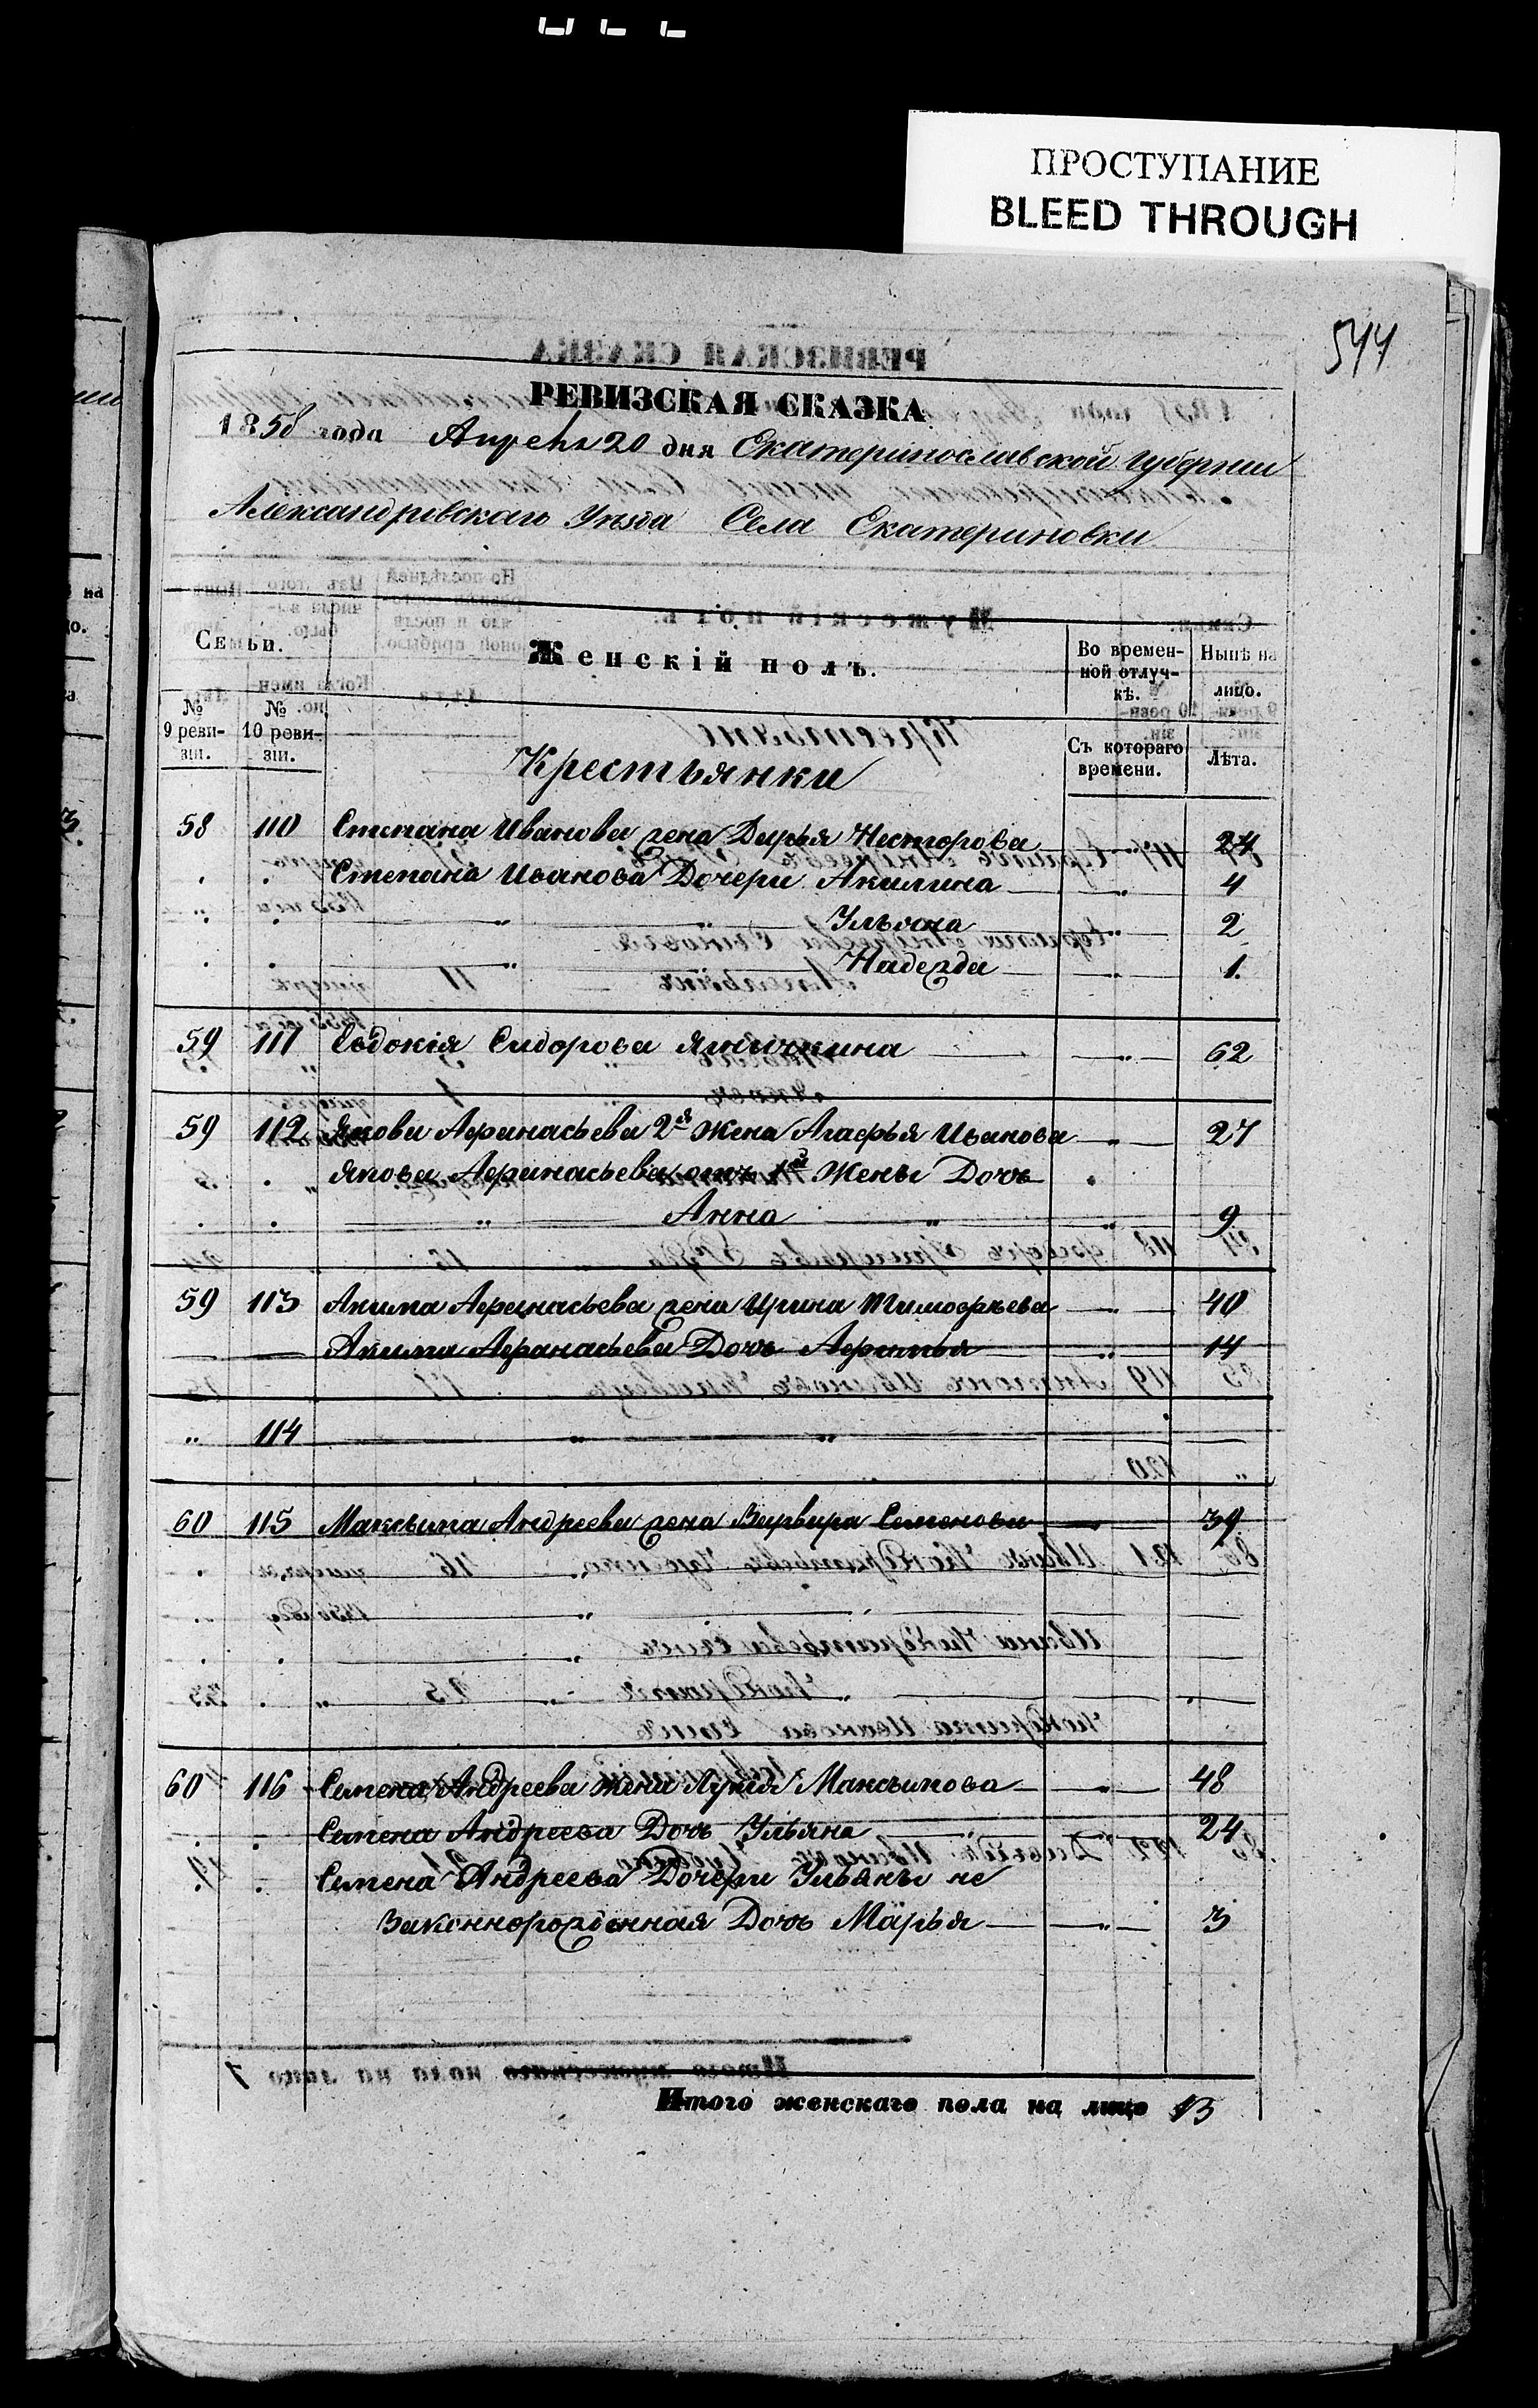 ПРОСТУПАНИЕ
BLEED THROUGH
544
РЕВИЗСКАЯ СКАЗКА
1858 года Апреля 20 дня Екатеринославской губернии
Александровскаго Уѣзда Села Екатериновки
Семьи.
Женскій полъ.
Во времен-
ной отлуч-
кѣ.
Нынѣ на
лицо.
№
9 реви-
зіи.
№
10 реви-
зіи.
Съ котораго
времени.
Лѣта.
Крестьянки
58 110 Степана Иванова жена Дарья Несторова 24
Степана Иванова Дочери Акилина 4
Ульяна 2
Надежда 1.
59 111 Евдокія Сидорова 62
59 112 Якова Афанасьева 2я Жена Агафья Иванова 27
Якова Афанасьева отъ 1й Жены Дочь
Анна 9
59 113 Акима Афанасьева жена Ирина Тимофѣева 40
Акима Афанасьева Дочь 14
114
60 115 Максыма Андреева жена Варвара Семенова 39
60 116 Семена Андреева жена Максымова 48
Семена Андреева Дочь Ульяна 24
Семена Андреева Дочери Ульяны не
Законнорожденная Дочь Марья 3
Итого женскаго пола на лицо 13